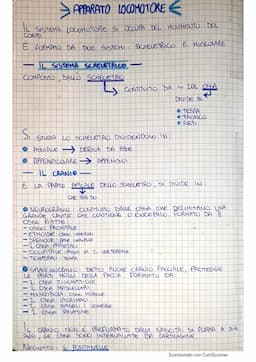 APPARATO LOCOMOTORE
IL SISTEMA LOCOMOTORE SI OCCUPA DEL MOVIMENTO DEL
CORPO
È FORMATO DA DUE SISTEMI: SCHELETRICO E MUSCOLARE
— IL SISTEMA SCHELETRICO —
COMPOSTO DALLO SCHELETRO
COSTITUITO DA ~ 206 OSSA
DIVIDE IN
• TESTA
• TRONCO
• ARTI
SI STUDIA LO SCHELETRO DIVIDENDOLO IN
• ASSIALE → DERIVA DA ASSE
• APPENDICOLARE → APPENDICI
— IL CRANIO —
È LA PARTE ASSIALE DELLO SCHELETRO, SI DIVIDE IN
• NEUROCRANIO: COSTITUITO DALLE OSSA CHE DELIMITANO UNA
GRANDE CAVITÀ CHE CONTIENE L'ENCEFALO. FORMATO DA 8
OSSA PIATTE:
- OSSO FRONTALE
- ETMOIDE
- SFENOIDE
- 2 OSSA PARIETALI
- OCCIPITALE
- TEMPORALI
• SPLANCNOCRANIO: DETTO ANCHE CRANIO FACCIALE, PROTEGGE
LE PARTI MOLLI DELLA FACCIA, FORMATO DA:
- 2 OSSA ZIGOMATICHE
- 2 OSSA MASCELLARI
- MANDIBOLA
- 2 OSSA LACRIMALI
- 2 OSSA NASALI
- 2 OSSA PALATINE
IL CRANIO NON È PREFORMATO DALLA NASCITA, SI FORMA A
LE OSSA SONO INTERVALLATE DA CARTILAGINE.
NEONATO: 6 FONTANELLE
Scansionato con CamScanner